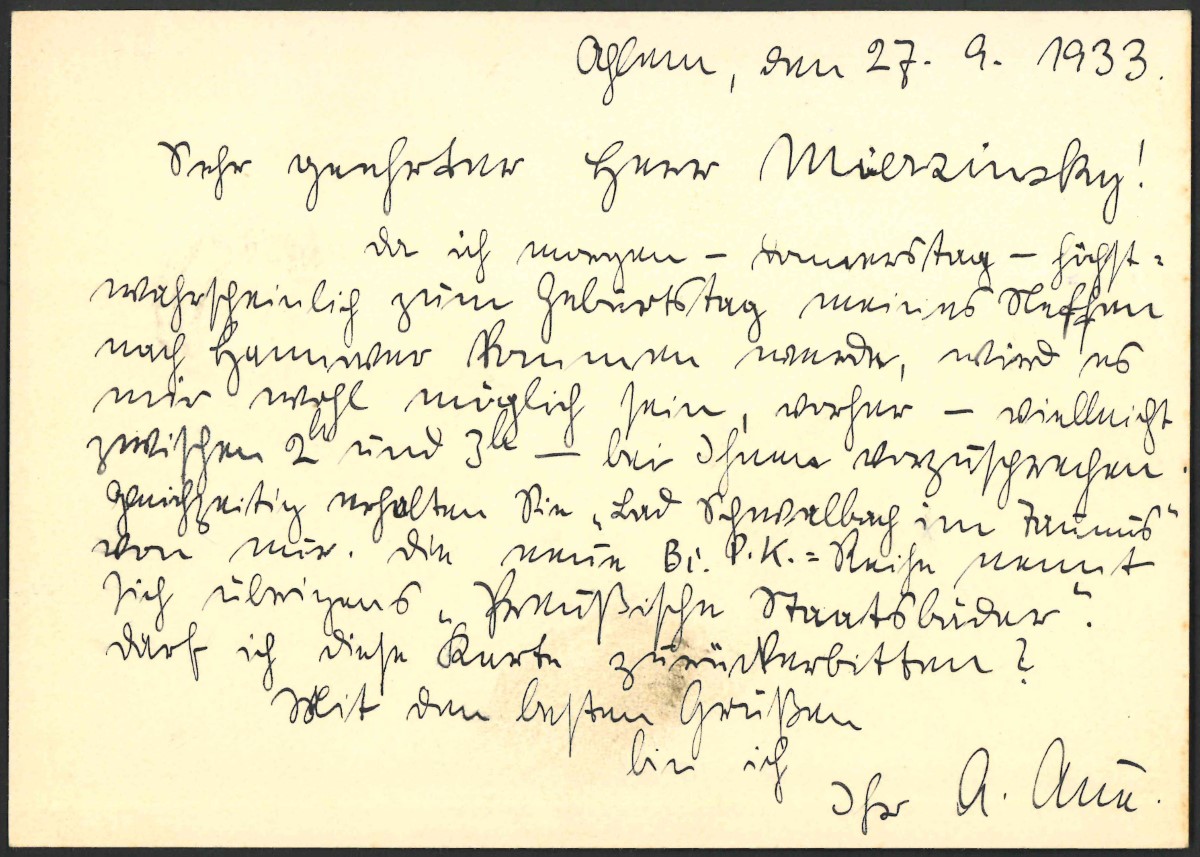 Ahlem, den 27. 9. 1933.
Sehr geehrter Herr Mierzinsky!
Da ich morgen – Donnerstag – höchst=
wahrscheinlich zum Geburtstag meines Neffen
nach Hannover kommen werde, wird es
mir wohl möglich sein, vorher – vielleicht
zwischen 2h und 3h – bei Ihnen vorzusprechen.
Gleichzeitig erhalten Sie „Bad Schwalbach im Taunus"
von mir. Die neue Bi. P.K.=Reihe nennt
sich übrigens „Preußische Staatsbäder".
Darf ich diese Karte zurückerbitten?
Mit den besten Grüßen
bin ich
Ihr A.